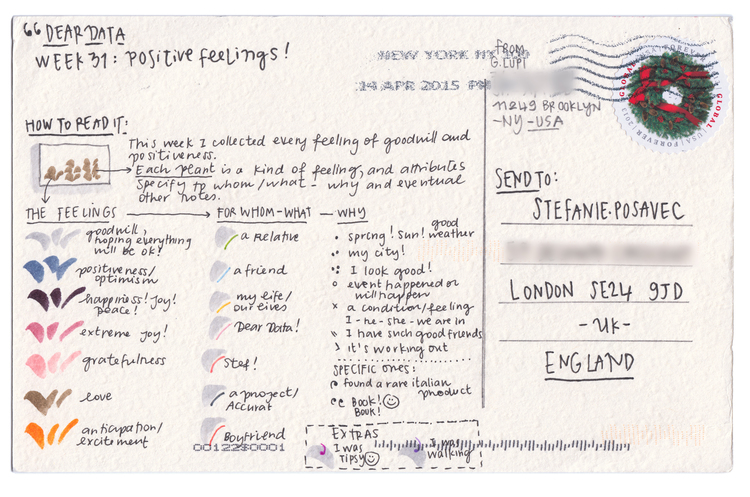 DEAR DATA
WEEK 31: positive feelings!
NEW YORK NY
14 APR 2015 PM
FROM
G. LUPI
11249 BROOKLYN
-NY-USA
GLOBAL FOREVER
GLOBAL USA/FOREVER/2013
HOW TO READ IT:
This week I collected every feeling of goodwill and
positiveness.
Each plant is a kind of feeling, and attributes
specify to whom/what - why and eventual
other notes.
THE FEELINGS
goodwill,
hoping everything
will be ok!
positiveness/
optimism
happiness! Joy!
peace!
extreme joy!
gratefulness
love
anticipation/
excitement
FOR WHOM-WHAT
a relative
a friend
my life/
our lives
Dear Data!
Stef!
a project/
Accurat
Boyfriend
WHY
spring! sun! good weather
my city!
I look good!
event happened or
will happen
a condition/feeling
I-he-she-we are in
I have such good friends
it's working out
SPECIFIC ONES:
found a rare italian
product
Book!
Book!
EXTRAS
I was
tipsy
I was
walking
SEND TO:
STEFANIE.POSAVEC
LONDON SE24 9JD
-UK-
ENGLAND